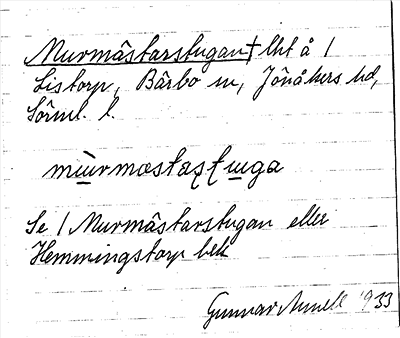 Murmästarstugan† lht å /
Listorp, Bärbo sn, Jönåkers hd,
Sörml. l.
mùurmæstaʂʈɯga
Se / Murmästarstugan eller
Hemmingstorp bek
Gunnar Amell 1933